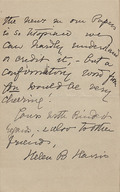 the news in our Papers
is so Utopian we
can hardly understand
or credit it, - but a
confirmatory word from
you would be very
cheering!
Yours with kindest
regards
friend,
Helen B Harris